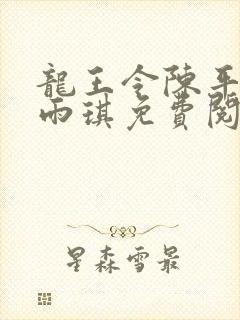 龍王令陳平
雨琪免費閱
星森雪最